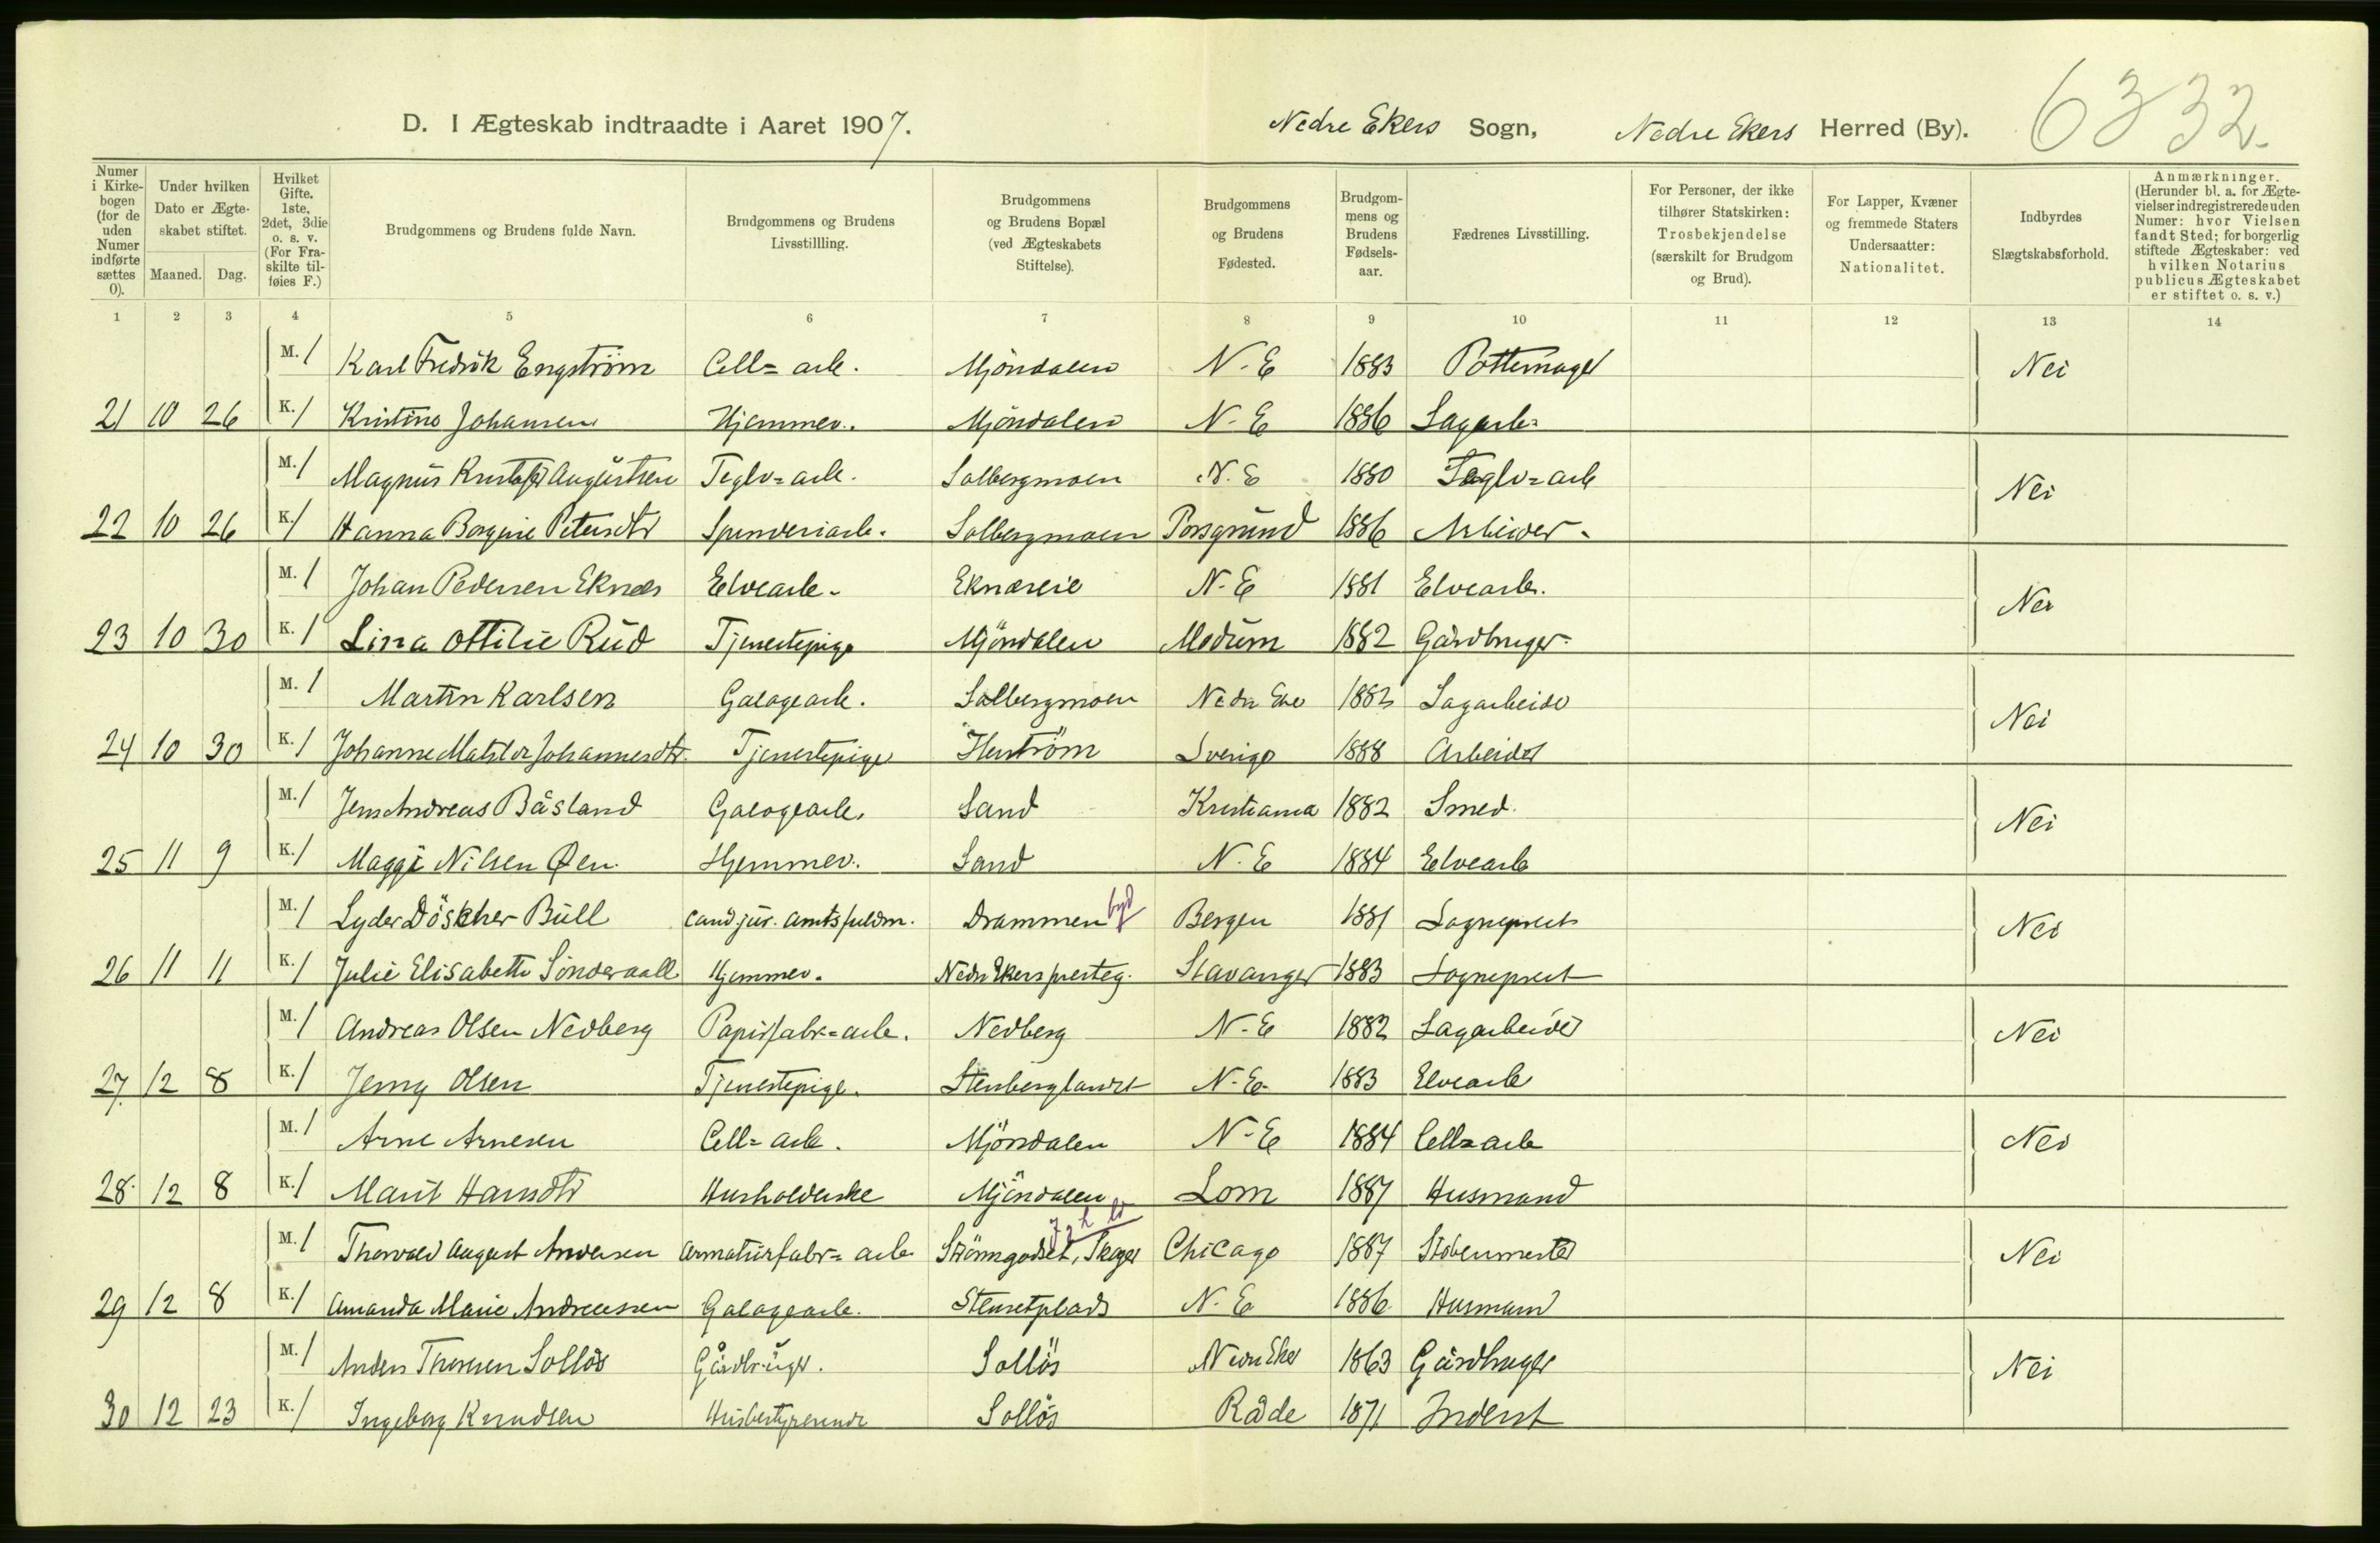 D. I Ægteskab indtraadte i Aaret 1907. Nedre Ekers Sogn, Nedre Ekers Herred (By). 6332.
Numer i Kirkebogen (for de uden Numer indførte sættes 0).
Under hvilken Dato er Ægteskabet stiftet.
Maaned. Dag.
Hvilket Gifte. 1ste, 2det, 3die o. s. v. (For Fraskilte tilføies F.)
Brudgommens og Brudens fulde Navn.
Brudgommens og Brudens Livsstillling.
Brudgommens og Brudens Bopæl (ved Ægteskabets Stiftelse).
Brudgommens og Brudens Fødested.
Brudgommens og Brudens Fødselsaar.
Fædrenes Livsstilling.
For Personer, der ikke tilhører Statskirken: Trosbekjendelse (særskilt for Brudgom og Brud).
For Lapper, Kvæner og fremmede Staters Undersaatter: Nationalitet.
Indbyrdes Slægtskabsforhold.
Anmærkninger. (Herunder bl. a. for Ægtevielser indregistrerede uden Numer: hvor Vielsen fandt Sted; for borgerlig stiftede Ægteskaber: ved hvilken Notarius publicus Ægteskabet er stiftet o. s. v.)
1 2 3 4 5 6 7 8 9 10 11 12 13 14
M. 1 Karl Fredrik Engström Cell= arb. Mjöndalen N-E 1883 Pottemager Nei
21 10 26 K. 1 Kristine Johansen Hjemmev. Mjöndalen N-E 1886 Sagarb.
M. 1 Magnus Kristofer Augustsen Teglv= arb. Solbergmoen N.E 1880 Teglv= arb Nei
22 10 26 K. 1 Hanna Petersdtr Spinderiarb. Solbergmoen Porsgrund 1886 Arbeider.
M. 1 Johan Pedersen Eknæs Elvearb. Eknæseie N-E 1881 Elvearb. Nei
23 10 30 K. 1 Lina Ottilie Rud Tjenestepige Mjöndalen Modum 1882 Gårdbruger.
M. 1 Martin Karlsen Galogearb. Solbergmoen Nedre Eker 1882 Sagarbeider Nei
24 10 30 K. 1 Johanne Johannesdtr. Tjenestepige Sverige 1888 Arbeider
M. 1 Jens Andreas Båsland Galogearb. Sand Kristiania 1882 Smed. Nei
25 11 9 K. 1 Maggi Nilsen Øen. Hjemmev. Sand N-E 1884 Elvearb
M. 1 Lyder Döscher Bull cand. jur. amtsfuldm. Drammen byd Bergen 1881 Sogneprest Nei
26 11 11 K. 1 Julie Elisabeth Sönderaall Hjemmev. Nedre Ekers presteg. Stavanger 1883 Sogneprest
M. 1 Andreas Olsen Nedberg Papirfabr= arb. Nedberg N-E 1882 Sagarbeider Nei
27 12 8 K. 1 Jenny Olsen Tjenestepige. N-E- 1883 Elvearb
M. 1 Arne Arnesen Cell= arb. Mjöndalen N-E 1884 Cell= arb Nei
28 12 8 K. 1 Marit Hansdtr Husholderske Mjöndalen Lom 1887 Husmand
M. 1 Thorvald August Andersen Armaturfabr= arb Strömsgodset, Skoger Chicago 1887 Støbermester Nei
29 12 8 K. 1 Amanda Marie Andreassen Galogearb. Stensetplads N-E 1886 Husmand
M. 1 Anders Thoresen Sollös Gårdbruger. Sollös Nedre Eker 1863 Gårdbruger Nei
30 12 23 K. 1 Ingeborg Knudsen Husbestyrerinde Sollös Råde 1871 Inderst